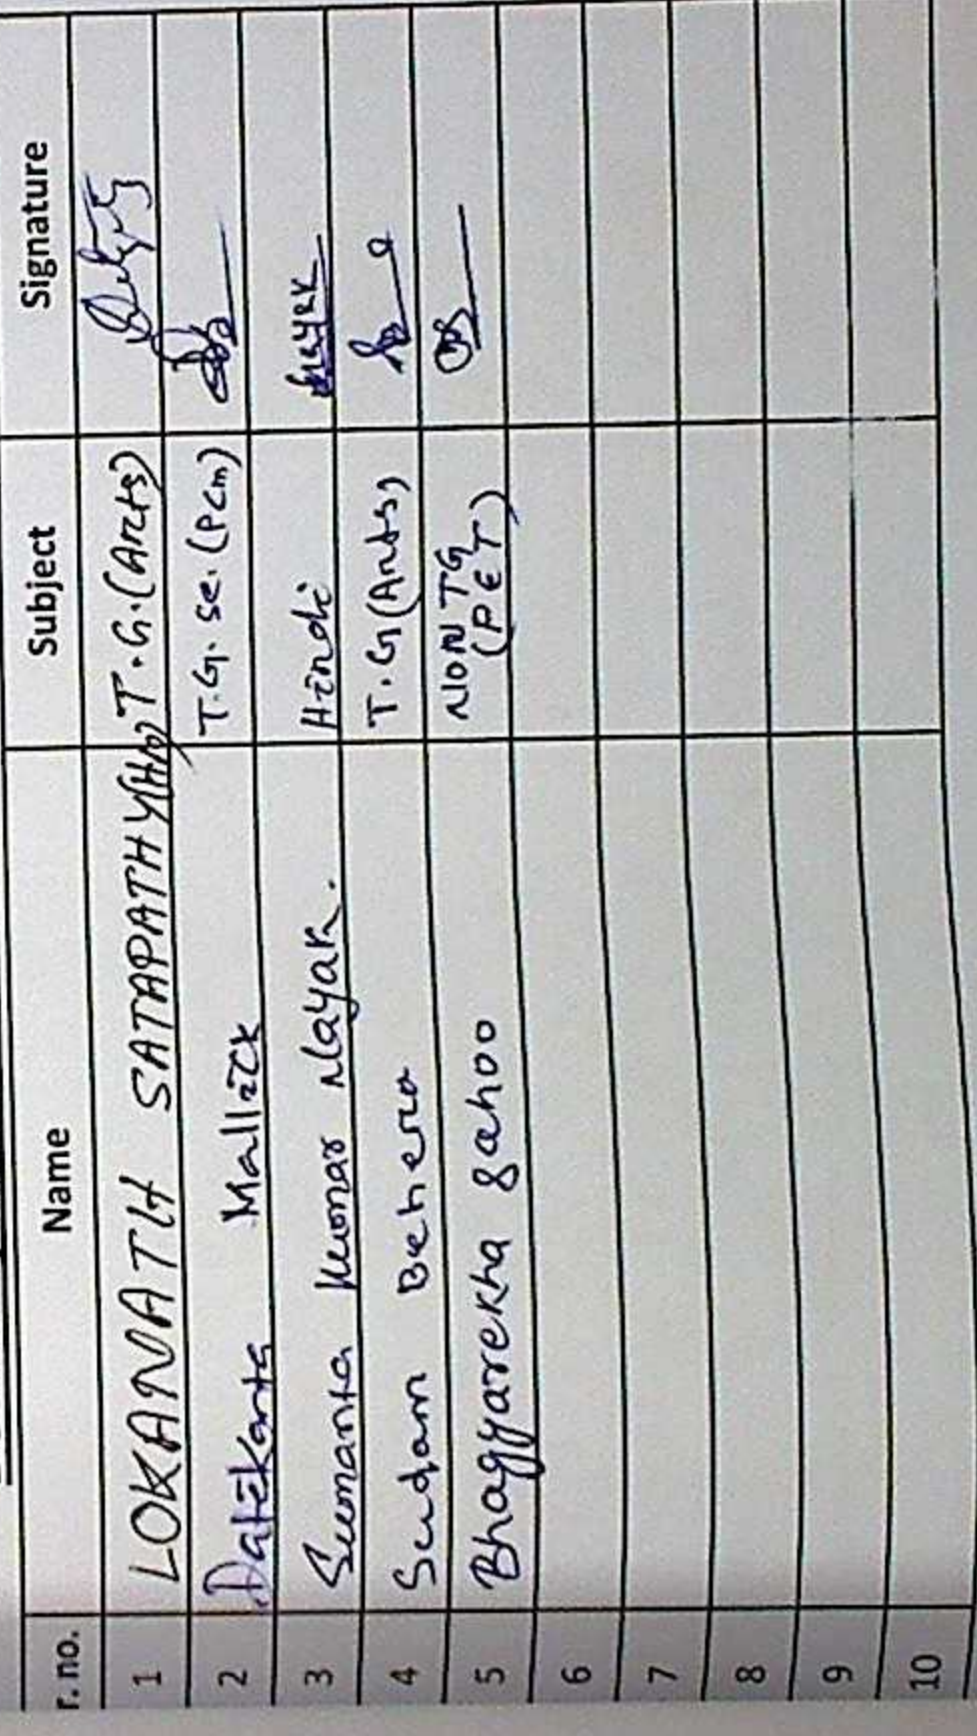 r. no. Name Subject Signature
1 LOKANATH SATAPATHY(Hm) T.G.(Arts)
2 Mallick T.G. Sc. (PCM)
3 Sumanta Kumar Nayak. Hindi Nayak
4 Sudam Behera T.G(Arts)
5 Bhagyarekha Sahoo NON TG
(PET)
6
7
8
9
10